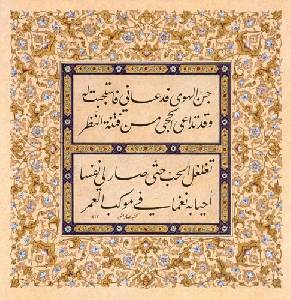 جن الهوى قد دعاني فاستجبت له
وقد تداعى الحجى من فتنة النظر
تغلغل الحب حتى صار لي نفسا
أحيا به نغما في موكب العمر